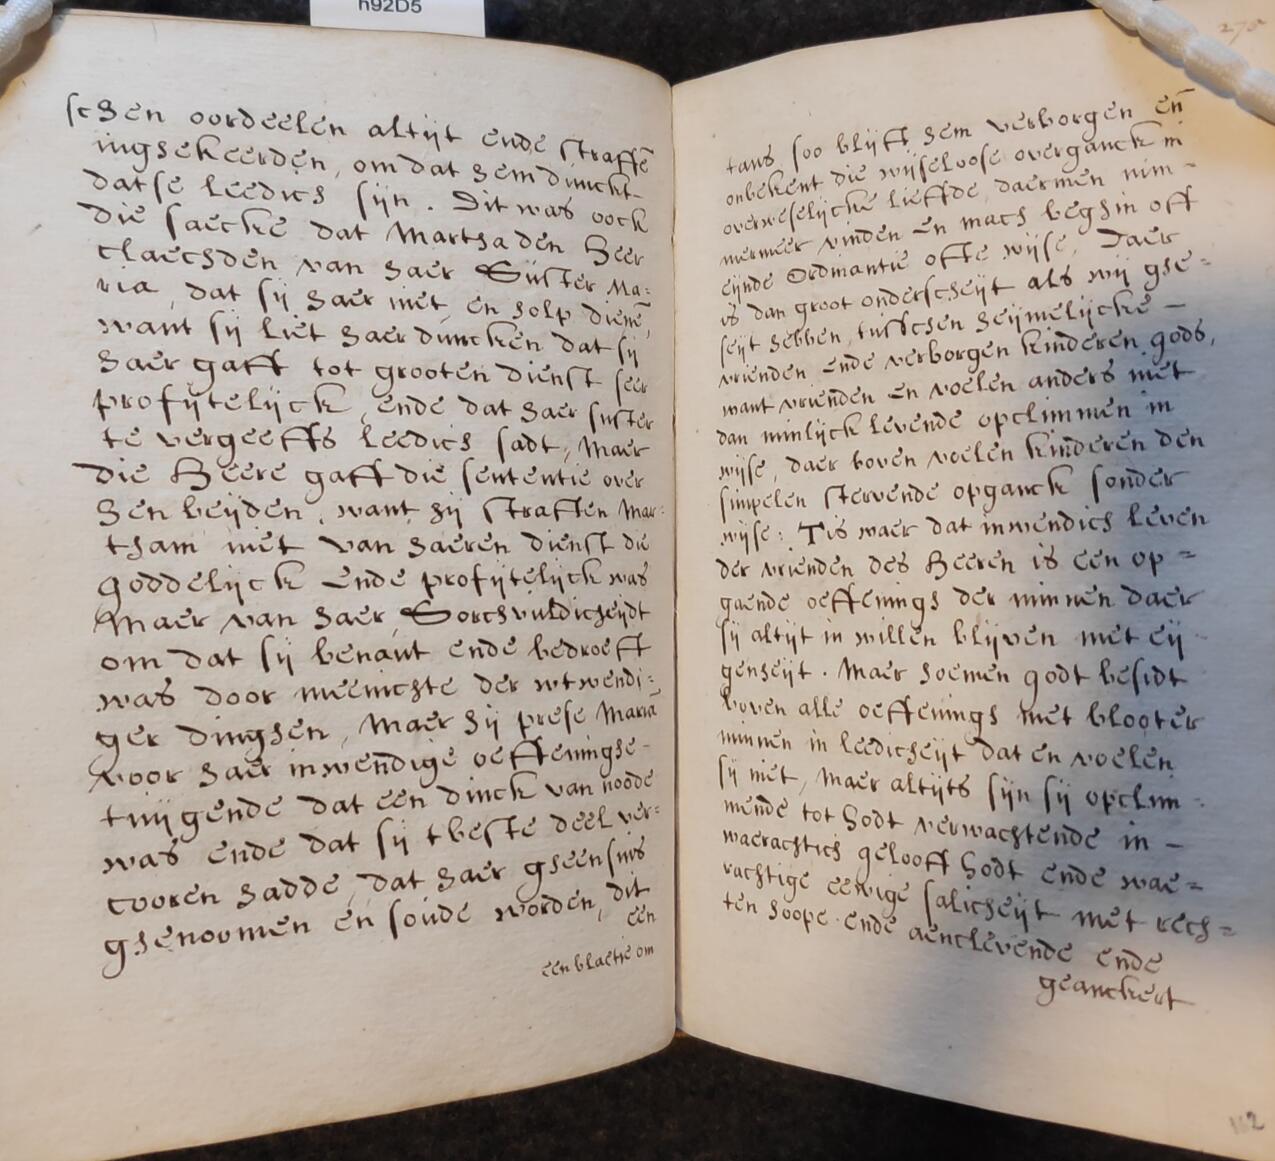 h92D5
schen oordeelen altijt ende straffē
inghekeerden, om dat hem dunckt-
datse leedich sijn. Dit was oock
die saecke dat Martha den Heer
claechden van haer Suster Ma:
ria, dat sij haer niet en holp dienē,
want sij liet haer duncken dat sij
haer gaff tot grooten dienst seer
profijtelijck, ende dat haer suster
te vergeeffs leedich sadt, Maer
die Heere gaff die sententie over
hen beijden, want hij straften Mar:
tham niet van haeren dienst die
goddelijck ende profijtelijck was
Maer van haer Sorchvuldicheijdt
om dat sij benaut ende bedroeft
was door meenichte der wtwendi:
ger dinghen, Maer hij prese Maria
voor haer inwendige oeffeninghe-
tuijgende dat een dinck van noode
was ende dat sij tbeste deel ver:
cooren hadde, dat haer gheensins
ghenoomen en soude worden, dit
een
een blaetje om
270
tans soo blijft hem verborgen en̄
onbekent die wijseloose overganck in
overweselijcke lieffde, daermen nim-
mermeer vinden en mach beghin off
eijnde Ordinantie ofte wijse, Daer
is dan groot onderscheijt als wij ghe-
seijt hebben, tusschen heijmelijcke –
vrienden ende verborgen kinderen gods,
want vrienden en voelen anders niet
dan minlijck levende opclimmen in
wijse, daer boven voelen kinderen den
simpelen stervende opganck sonder
wijse: Tis waer dat inwendich leven
der vrienden des Heeren is een op =
gaende oeffeningh der minnen daer
sij altijt in willen blijven met eij
genheijt. Maer hoemen godt besidt
boven alle oeffeningh met blooter
minnen in leedicheijt dat en voelen
sij niet, Maer altijts sijn sij opclim -
mende tot Godt verwachtende in –
waerachtich gelooff Godt ende wae =
rachtige eewige salicheijt met rech =
ten hoope ende aenclevende ende
geanckert
162